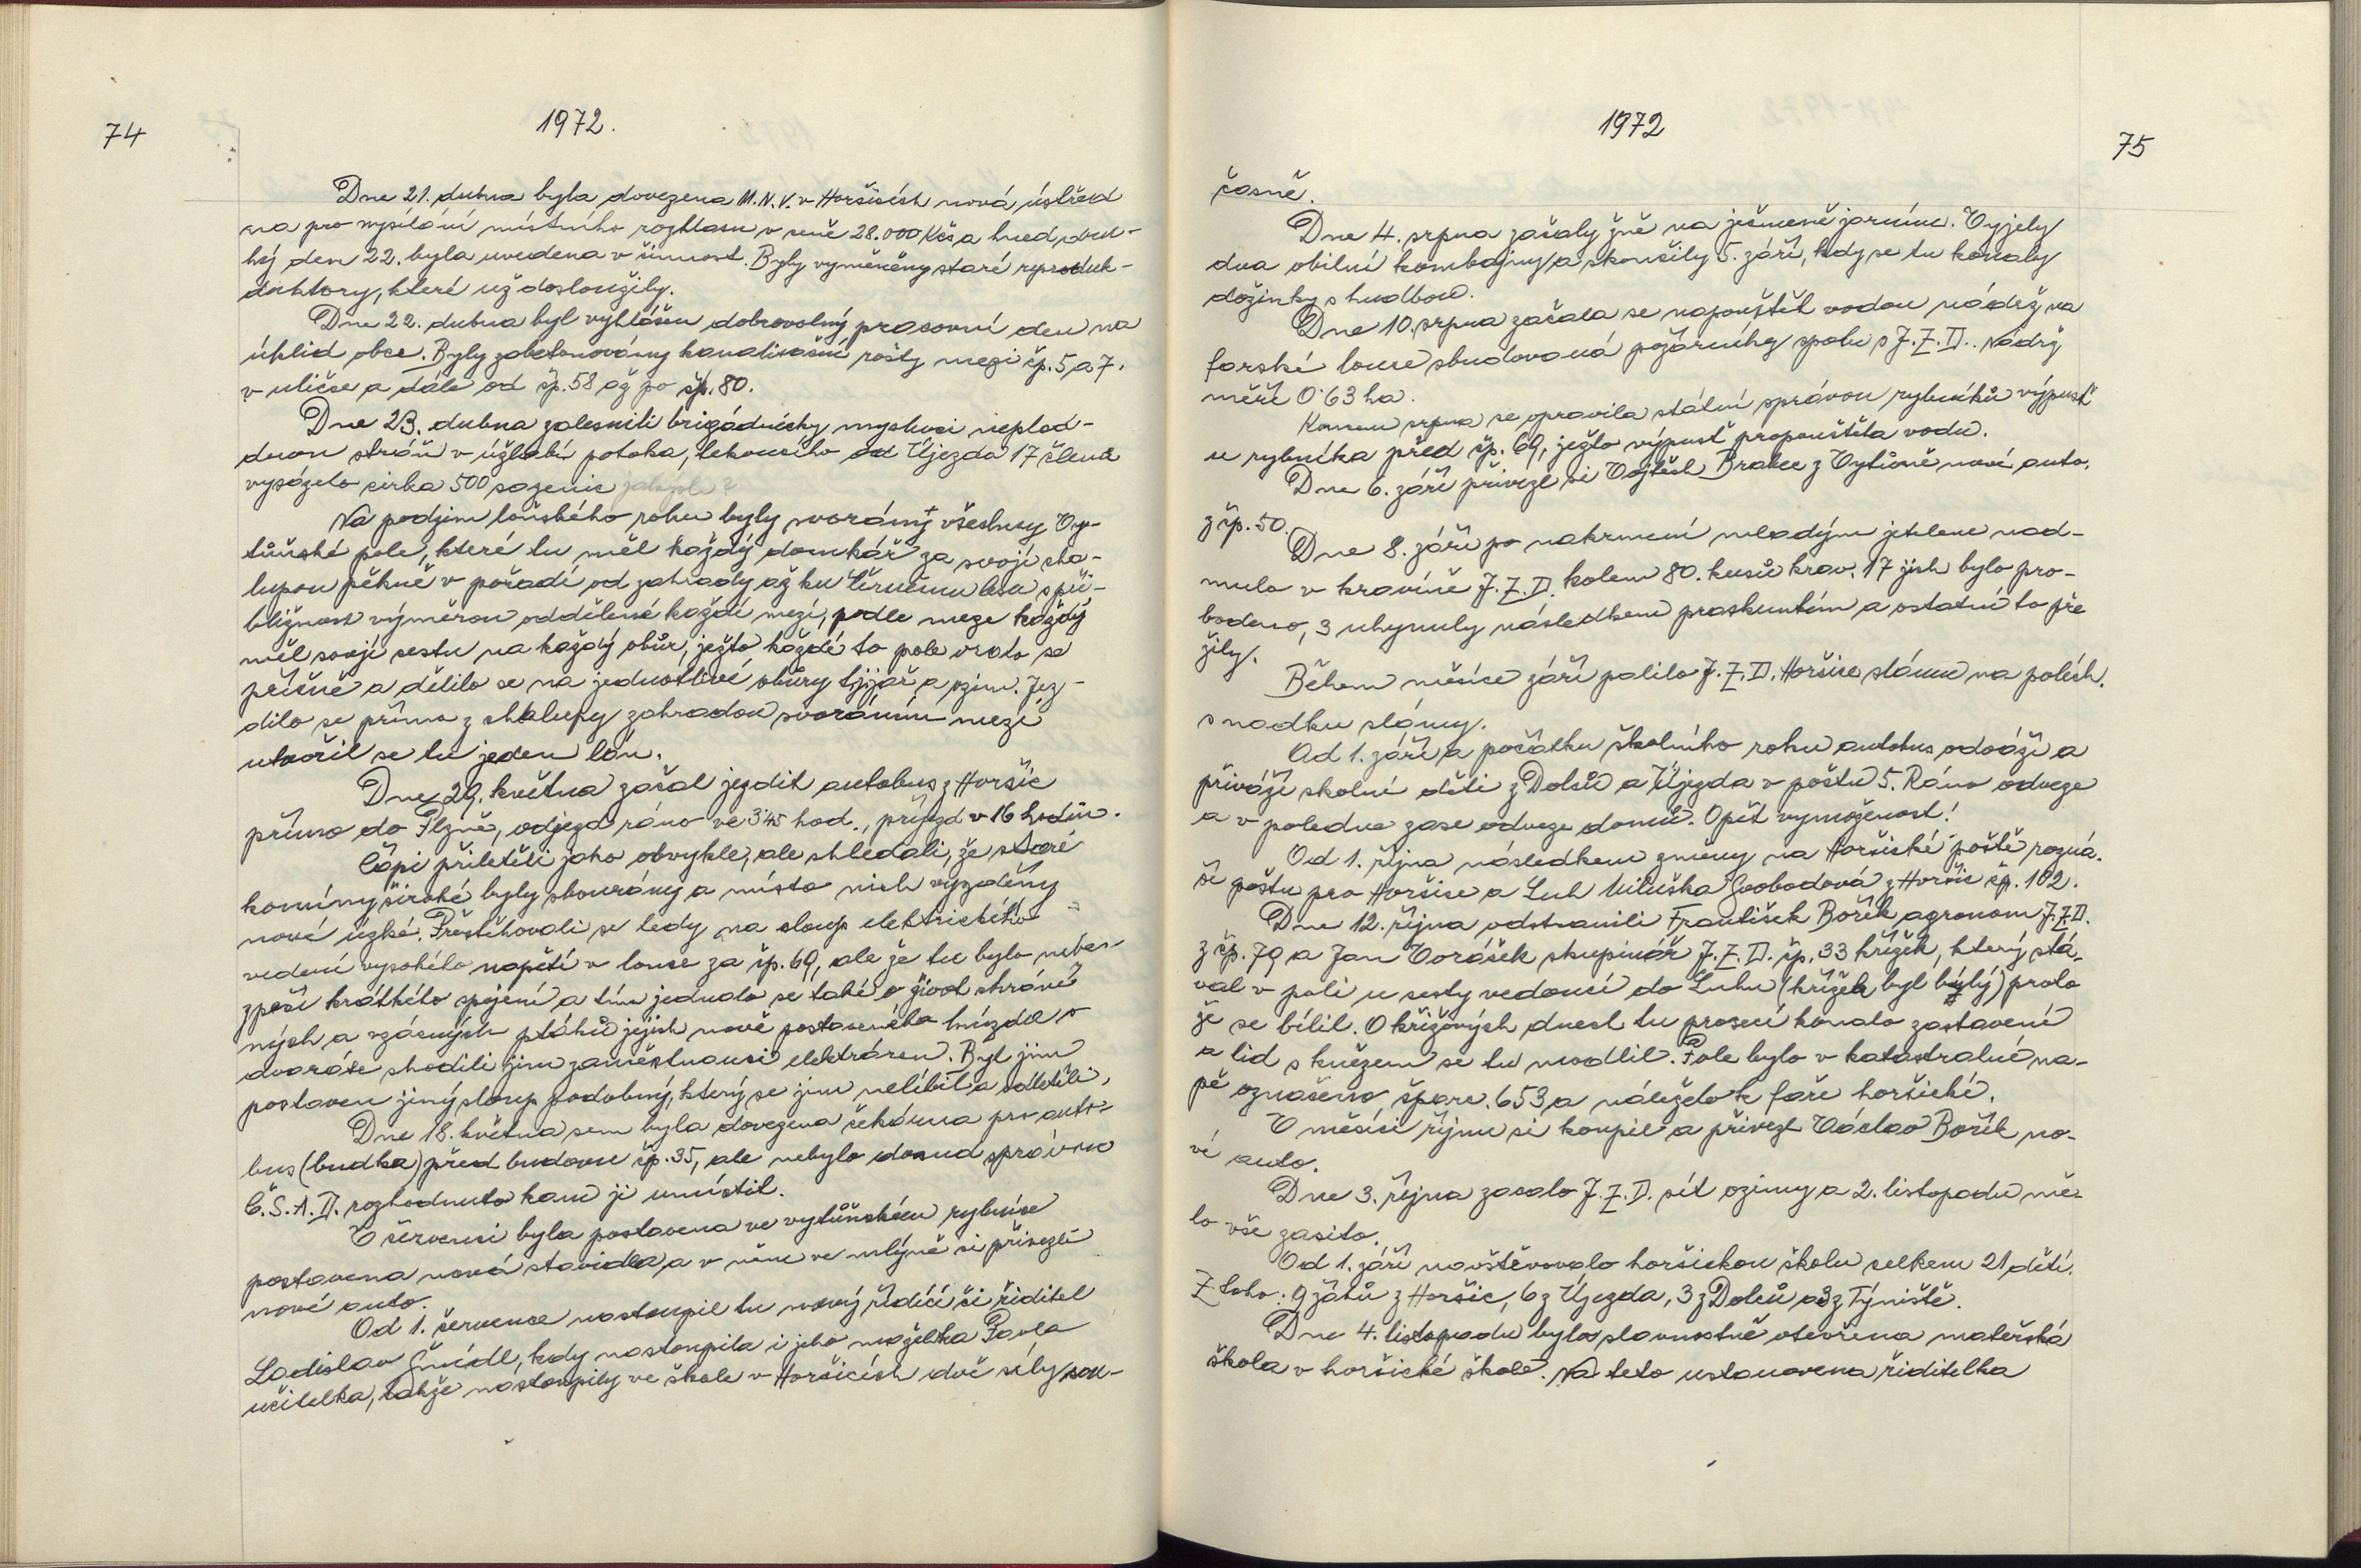 74
1972.
Dne 21. dubna byla dovezena M.N.V. v Horšicích nová ústřed
na pro vysílání místního rozhlasu v ceně 28.000 Kčs a hned dru-
hý den 22. byla uvedena v činnost. Byly vyměněny staré reproduk-
duktory, které už dosloužily.
Dne 22. dubna byl vyhlášen dobrovolný pracovní den na
úklid obce. Byly zabetonovány kanalisační rošty mezi čp. 5 a 7.
v uličce a dále od čp. 58 až po čp. 80.
Dne 23. dubna zalesnili brigádnicky myslivci neplod-
dnou stráň v úžlabí potoka, tekoucího od Újezda 17 členů
vysázelo cirka 500 sazenic
Na podzim loňského roku byly svorány všechny Vy-
tůňské pole, které tu měl každý domkář za svojí cha-
lupou pěkně v pořadí od zahrady až ku Černému lesu s při-
bližnou výměrou oddělené každé mezí, podle meze každý
měl svoji cestu na každý obůr, ježto každé to pole oralo se
příčně a dělilo se na jednotlivé obůry t.j. jař a ozim. Jez-
dilo se přímo z chalupy zahradou svoráním mezí
utvořil se tu jeden lán.
Dne 29. května začal jezdit autobus z Horšic
přímo do Plzně, odjezd ráno ve 3·45 hod., příjezd v 16 hodin.
Čápi přiletěli jako obvykle, ale shledali, že staré
komíny široké byly zbourány a místo nich vyzděny
nové úzké. Přestěhovali se tedy na sloup elektrického
vedení vysokého napětí v louce za čp. 69, ale že tu bylo nebez-
zpečí krátkého spojení a tím jednalo se také o život chráně
ných a vzácných ptáků jejich nově postaveného hnízda
dvakráte shodili jim zaměstnanci elektráren. Byl jim
postaven jiný sloup podobný, který se jim nelíbil a odletěli.
Dne 18. května sem byla dovezena čekárna pro auto-
bus (budka) před budovu čp. 35, ale nebylo dosud správou
Č.S.A.D. rozhodnuto kam ji umístit.
V červenci byla postavena ve vytůňském rybníce
postavena nová stavidla, a v něm ve mlýně si přivezli
nové auto.
Od 1. července nastoupil tu nový řídící či ředitel
Ladislav Šnédl, kdy nastoupila i jeho manželka Pavla
učitelka, takže nastoupily ve škole v Horšicích dvě síly sou-
1972
75
časně.
Dne 4. srpna začaly žně na ječmeně jarním. Vyjely
dva obilní kombajny a skončily 5. září, kdy se tu konaly
dožinky s hudbou.
Dne 10. srpna začala se napouštět vodou nádrž na
farské louce zbudovaná požárníky spolu s J.Z.D. Nádrž
měří 0·63 ha.
Koncem srpna se opravila státní správou rybníků výpusť
u rybníka před čp. 69, ježto výpusť propouštěla vodu.
Dne 6. září přivezl si Vojtěch Brabec z Vytůně nové auto.
z čp. 50.
Dne 8. září po nakrmení mladým jetelem nad-
mulo v kravíně J.Z.D. kolem 80. kusů krav. 17 jich bylo pro-
bodeno, 3 uhynuly následkem prasknutím a ostatní to pře
žily.
Během měsíce září palilo J.Z.D. Horšice slámu na polích.
snadku slámy.
Od 1. září a počátku školního roku autobus odváží a
přiváží skolní děti z Dolců a Újezda v počtu 5. Ráno odveze
a v poledne zase odveze domů. Opět vymoženost!
Od 1. října následkem změny na Horšické poště rozná-
ší poštu pro Horšice a Luh Miluška Svobodová z Horšic čp. 102.
Dne 12. října odstranili František Bořík agronom J.Z.D.
z čp. 79 a Jan Voráček skupinář J.Z.D. čp. 33 křížek, který stá-
val v poli u cesty vedoucí do Luhu (křížek byl bílý) proto
že se bílil. O křížových dnech tu procesí konalo zastavení
a lid s knězem se tu modlil. Pole bylo v katastralné ma-
pě označeno čparc. 653 a náleželo k faře horšické.
V měsíci říjnu si koupil a přivezl Václav Bořík no-
vé auto.
Dne 3. října zacalo J.Z.D. sít ozimy a 2. listopadu mě-
lo vše zasito.
Od 1. září navštěvovalo horšickou školu celkem 21 dětí.
Z toho: 9 žáků z Horšic, 6 z Újezda, 3 z Dolců a 3 z Týniště.
Dne 4. listopadu byla slavnostně otevřena mateřská
škola v horšické škole. Na teto ustanovena ředitelka